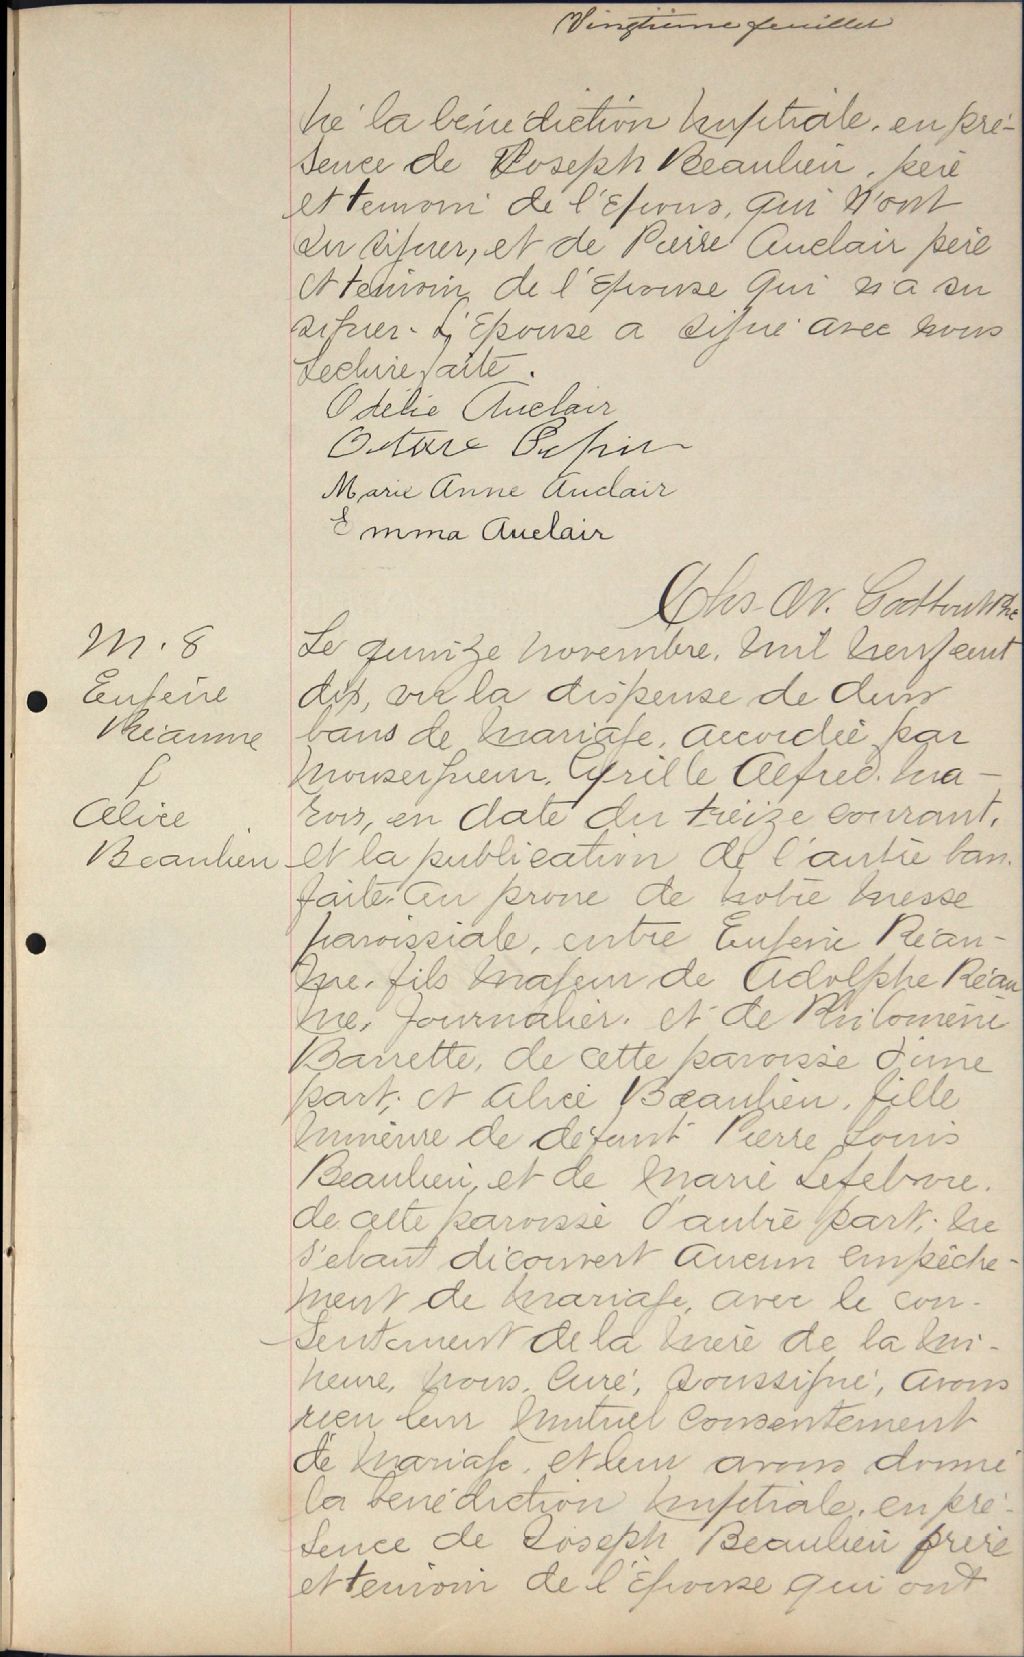 Vingtième feuillet
né la bénédiction nuptiale, en pré-
sence de Joseph Beaulieu, père
et temoin de l'Epoux, qui n'ont
su signer, et de Pierre Auclair père
et temoin de l'Epouse qui n'a su
signer. L'Epouse a signé avec nous
Lecture faite.
Odélie Auclair
Octave Pepin
Marie Anne Auclair
Emma Auclair
Chs. Ov.
M. 8
Eugène
Réaume
&
Alice
Beaulieu
Le quinze novembre, mil neuf cent
dix, vu la dispense de deux
bans de mariage, accordée par
Monseigneur, Cyrille Alfred. Ma-
rois, en date du treize courant,
et la publication de l'autre ban.
faite au prone de notre messe
paroissiale, entre Eugène Réau-
me, fils majeur de Adolphe Réau
me, journalier, et de Philomène
Barrette, de cette paroisse d'une
part; et Alice Beaulieu, fille
mineure de défunt Pierre Louis
Beaulieu, et de Marie Lefebvre.
de cette paroisse d'autre part; ne
s'etant découvert aucun empêche-
ment de mariage, avec le con-
sentement de la mère de la mi-
neure, nous, Curé, soussigné, avons
reçu leur mutuel consentement
de mariage, et leur avons donné
la bénédiction nuptiale, en pré-
sence de Joseph Beaulieu frère
et temoin de l'Epouse qui ont